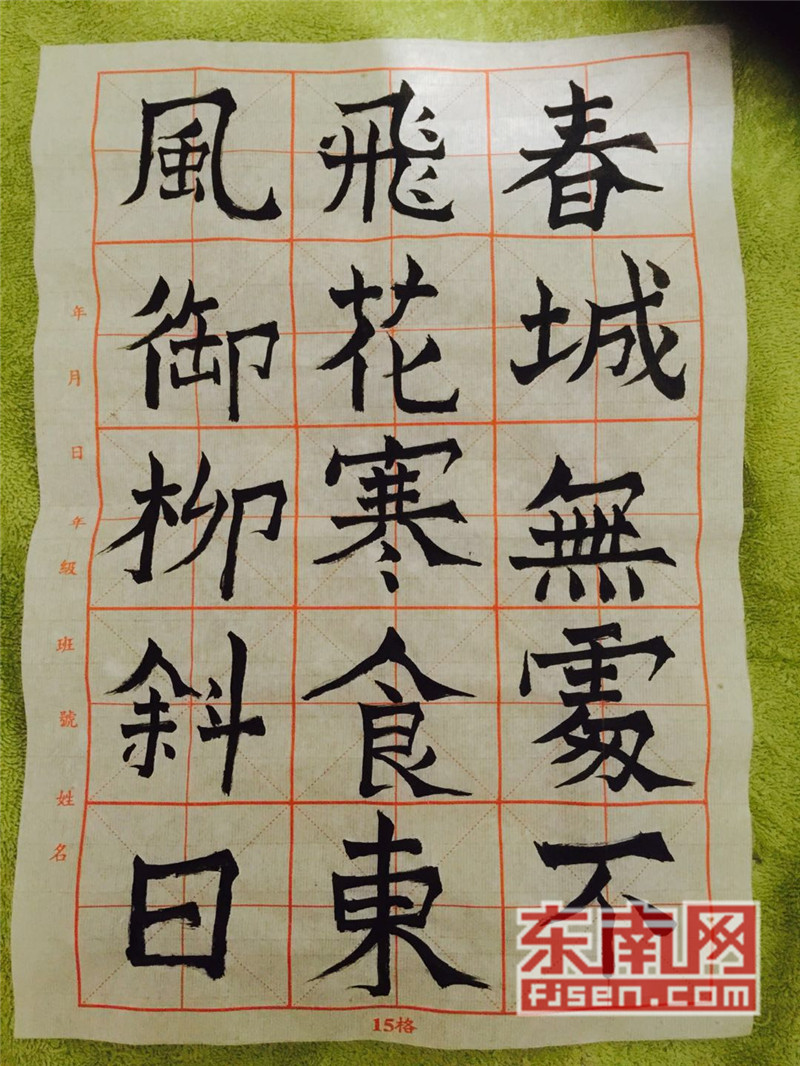 春城無處不
飛花寒食東
風御柳斜日
年月日年級班號姓名
15格
东南网
fjsen.com